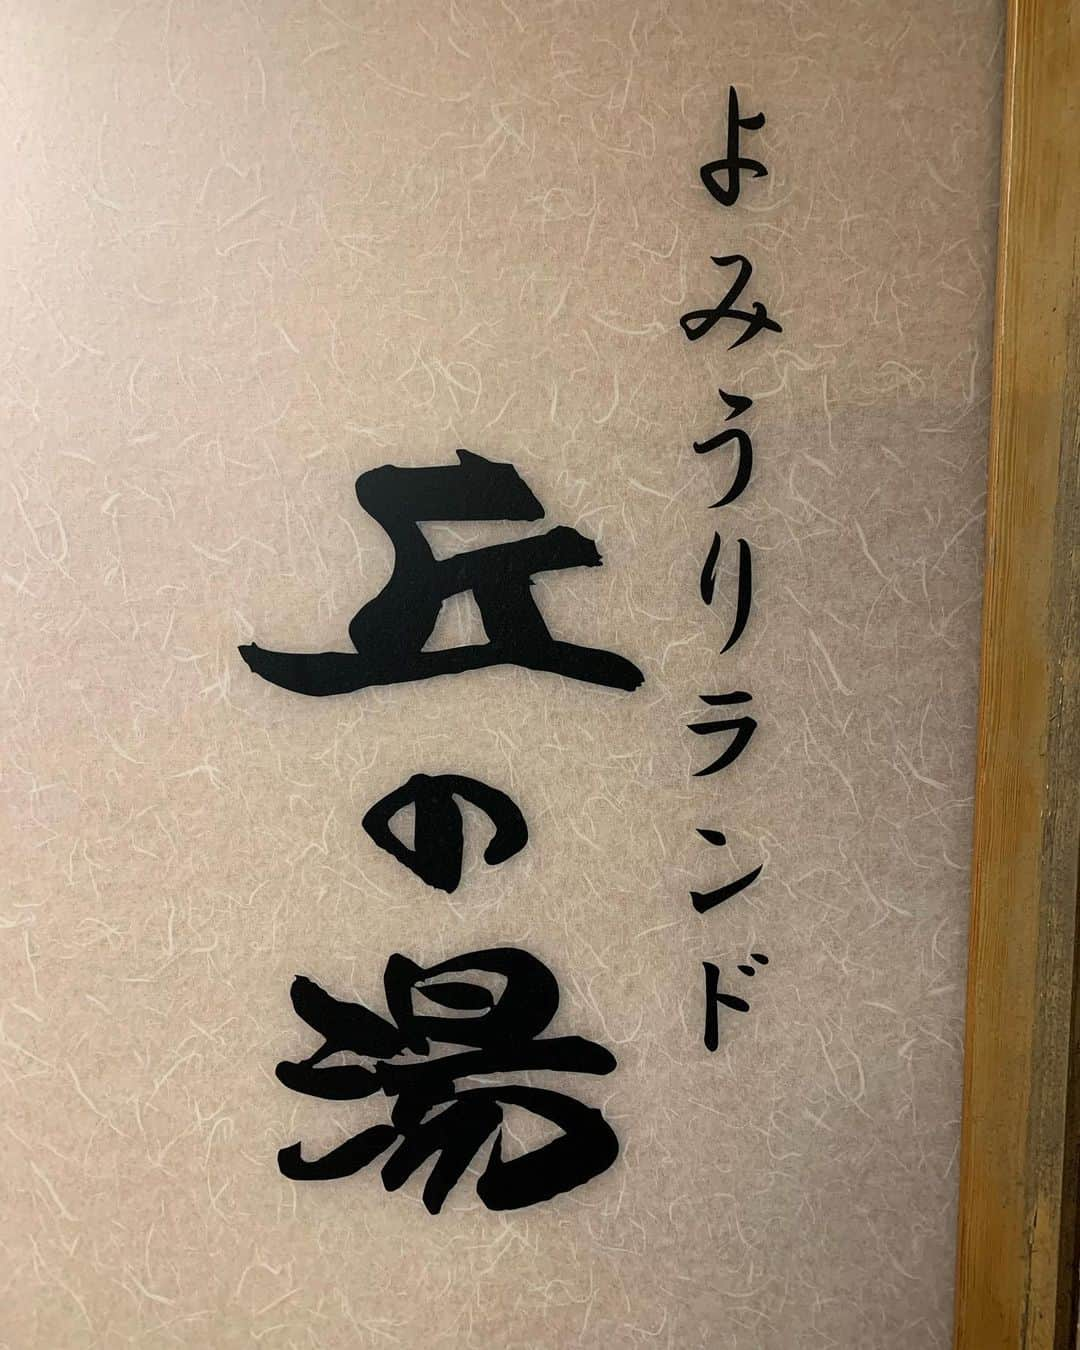 よみうりランド
丘の湯